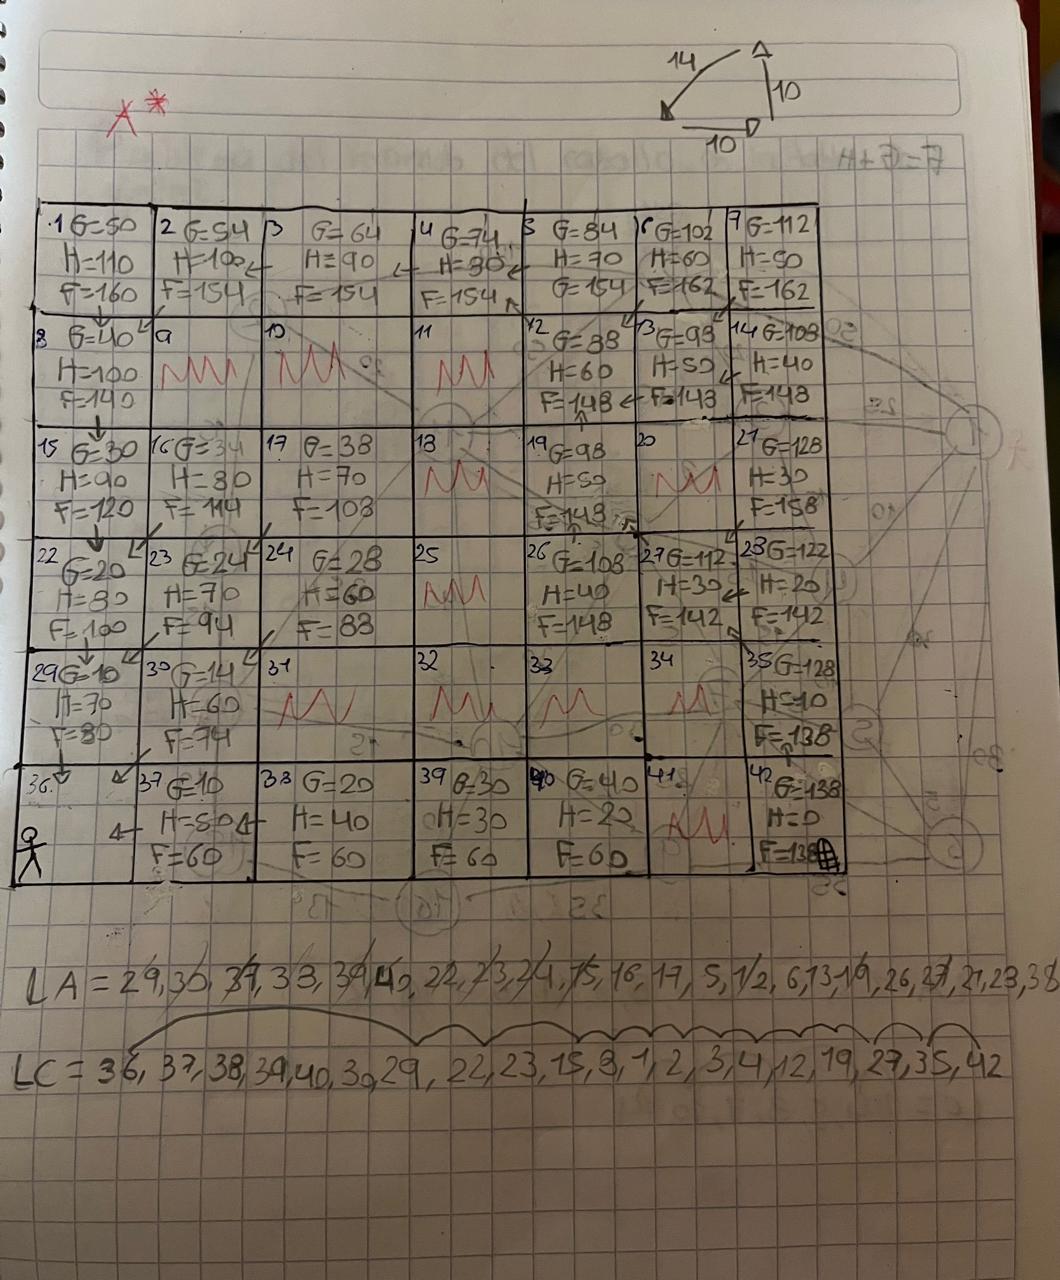 14
10
10
A*
F=G+H
1 G=50 H=110 F=160
2 G=54 H=100 F=154
3 G=64 H=90 F=154
4 G=74 H=80 F=154
5 G=84 H=70 G=154
6 G=102 H=60 F=162
7 G=112 H=50 F=162
8 G=40 H=100 F=140
9
10
11
12 G=88 H=60 F=148
13 G=98 H=50 F=148
14 G=108 H=40 F=148
15 G=30 H=90 F=120
16 G=34 H=80 F=114
17 G=38 H=70 F=108
18
19 G=98 H=50 F=148
20
21 G=128 H=30 F=158
22 G=20 H=80 F=100
23 G=24 H=70 F=94
24 G=28 H=60 F=88
25
26 G=108 H=40 F=148
27 G=112 H=30 F=142
28 G=122 H=20 F=142
29 G=10 H=70 F=80
30 G=14 H=60 F=74
31
32
33
34
35 G=128 H=10 F=138
36
37 G=10 H=50 F=60
38 G=20 H=40 F=60
39 G=30 H=30 F=60
40 G=40 H=20 F=60
41
42 G=138 H=0 F=138
LA = 29, 30, 37, 38, 39, 40, 22, 23, 24, 15, 16, 17, 5, 12, 6, 13, 19, 26, 27, 21, 28, 38
LC = 36, 37, 38, 39, 40, 30, 29, 22, 23, 15, 8, 1, 2, 3, 4, 12, 19, 27, 35, 42